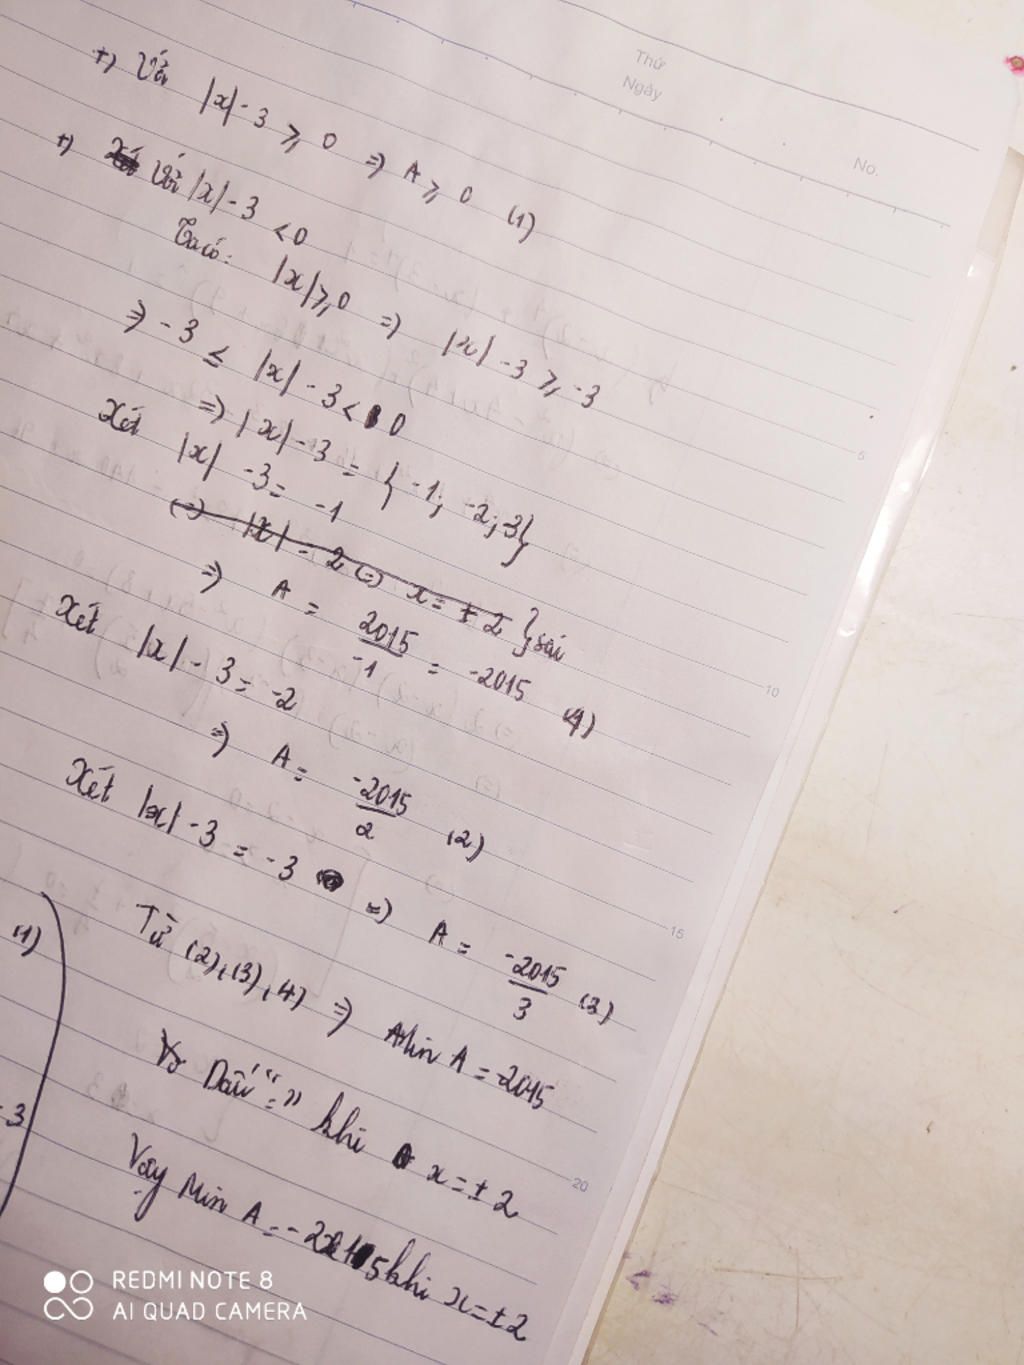 Thứ
Ngày
No.
+) Với |x| - 3 ⩾ 0 => A ⩾ 0 (1)
+) Với |x| - 3 < 0
Ta có: |x| ⩾ 0 => |x| - 3 ⩾ -3
=> -3 ≤ |x| - 3 < 0
=> |x| - 3 = { -1; -2; -3}
Xét |x| - 3 = -1
(=) |x| = 2 (=) x = ± 2 } sai
=> A = 2015/-1 = -2015 (4)
Xét |x| - 3 = -2
=> A = -2015/2 (2)
Xét |x| - 3 = -3 => A = -2015/3 (3)
Từ (2), (3), 4) => Min A = -2015
Dấu "=" khi x = ± 2
Vậy Min A = -2015 khi x = ± 2
(1)
3
5
10
15
20
REDMI NOTE 8
AI QUAD CAMERA